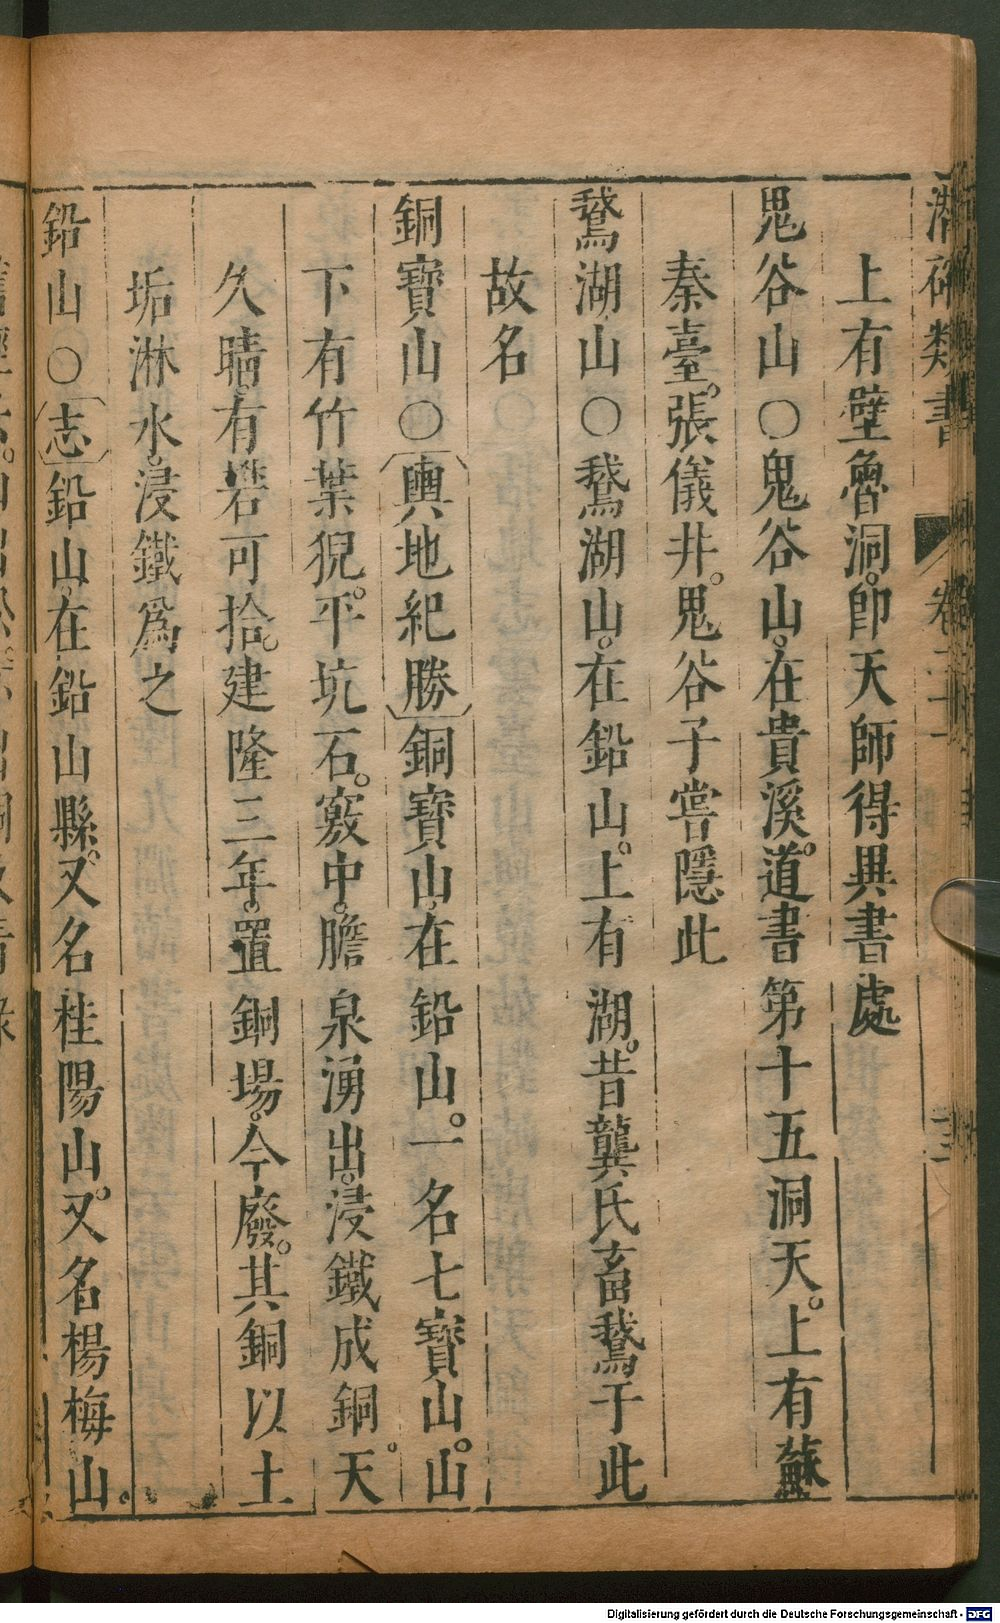 潛確類書 卷二十一
上有壁魯洞。即天師得異書處
鬼谷山○鬼谷山。在貴溪。道書第十五洞天。上有蘇
秦臺。張儀井。鬼谷子嘗隱此
鵞湖山○鵞湖山。在鉛山。上有湖。昔龔氏畜鵞于此
故名
銅寶山○〔輿地紀勝〕銅寶山。在鉛山。一名七寶山。山
下有竹葉猊。平坑石。竅中。膽泉湧出。浸鐵成銅。天
久晴。有礬可拾。建隆三年。置銅場。今廢。其銅以土
垢淋水。浸鐵爲之
鉛山○〔志〕鉛山。在鉛山縣。又名桂陽山。又名楊梅山。
Digitalisierung gefördert durch die Deutsche Forschungsgemeinschaft - DFG